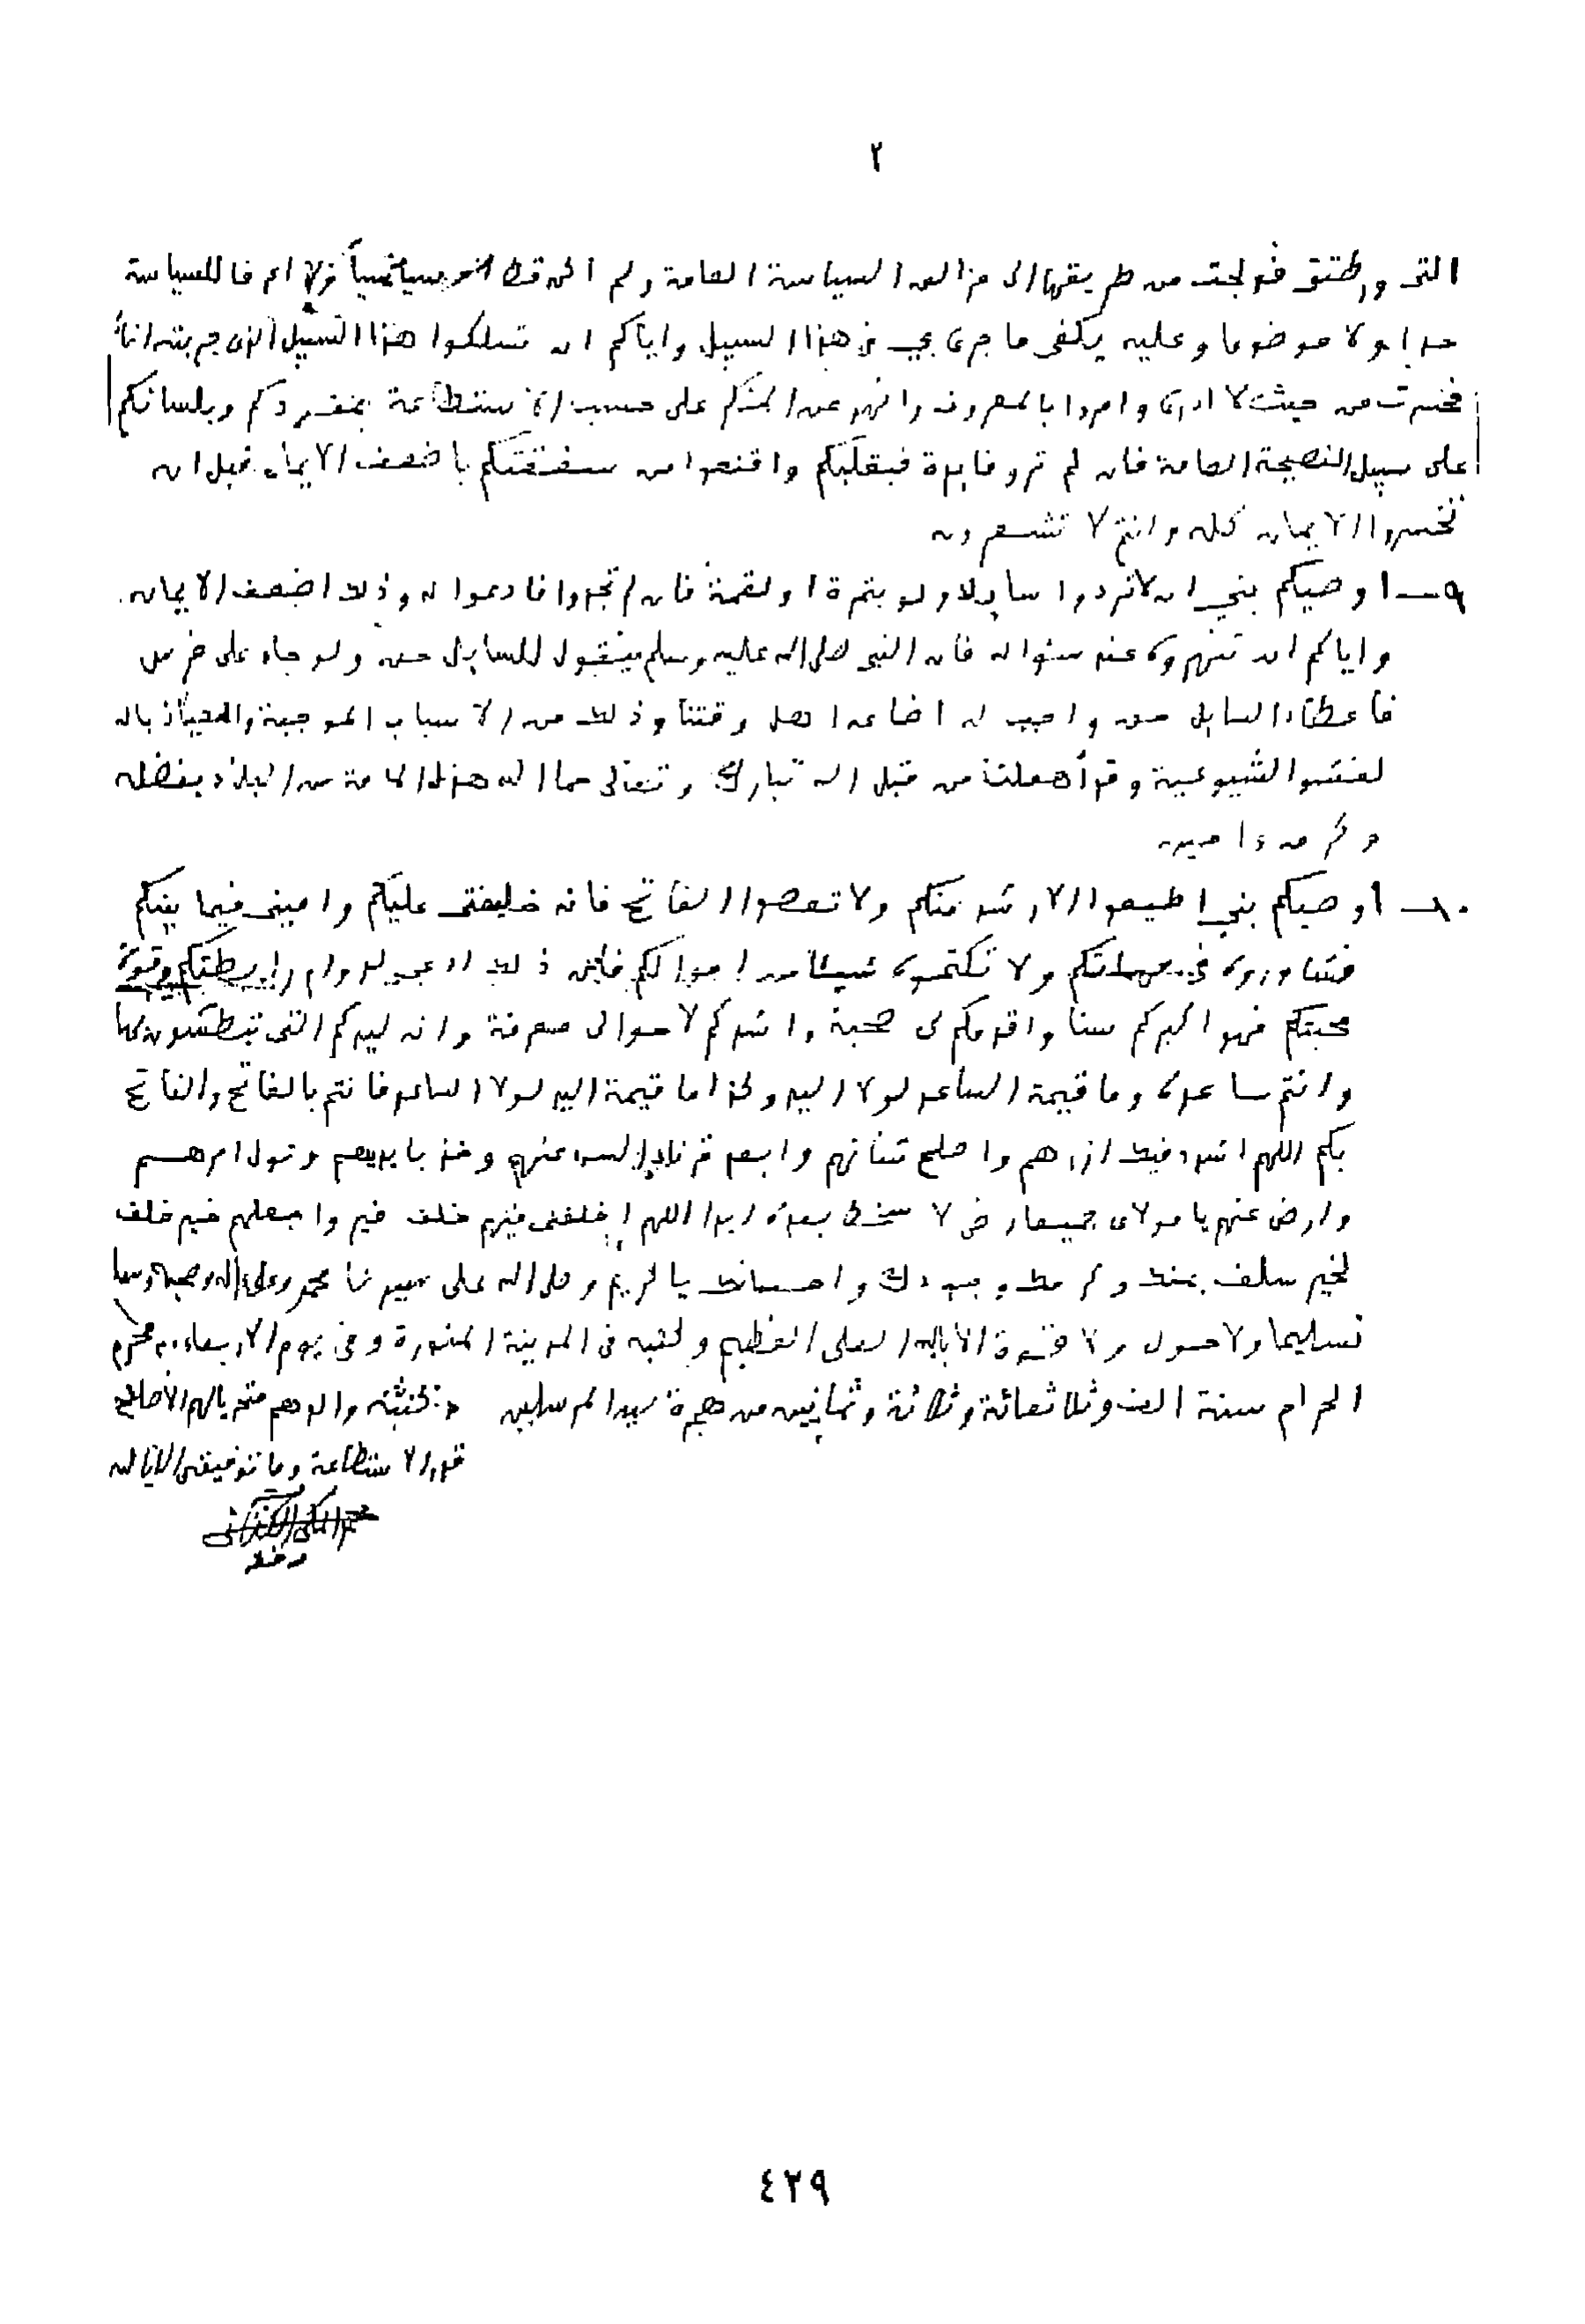 ٢
التي ورطتني فولجت من طريقها الى مزالق السياسة العامة ولم اكن قط سياسيا ولا اعرف للسياسة
حدا ولا موضوعا وعليه يكفي ما جرى بي في هذا السبيل واياكم ان تسلكوا هذا السبيل الذي جربته انا
فخسرت من حيث لا ادري وامروا بالمعروف وانهوا عن المنكر على حسب الاستطاعة بمفردكم وبلسانكم
على سبيل النصيحة العامة فان لم تروا فايدة فبقلبكم واقنعوا من صفقتكم باضعف الايمان قبل ان
تخسروا الايمان كله وانتم لا تشعرون
٩ ــ اوصيكم بني ان لا تردوا سايلا ولو بتمرة او لقمة فان لم تجدوا فادعوا له وذلك اضعف الايمان.
واياكم ان تنهروه عند سئواله فان النبي صلى الله عليه وسلم يقول للسايل حق ولو جاء على فرس
فاعطاء السايل حق واجب له اضاعه اهل وقتنا وذلك من الاسباب الموجبة والعياذ بالله
لفشو الشيوعية وقد أهملت من قبل الله تبارك وتعالى حما الله هذه الامة من البلاد بفضله
وكرمه ءامين
١٠ ــ أوصيكم بني اطيعوا الارشد منكم ولا تعصوا الفاتح فانه خليفتي عليكم واميني فيما بينكم
فشاوروه في مهماتكم ولا تكتموه شيئا من احوالكم فان ذلك ادعى لدوام رابطتكم وقوة
محبتكم فهو اكبركم سنا واقدمكم لي صحبة واشدكم لاحوالي معرفة وانه ليدكم التي تبطشون بها
وانتم ساعده وما قيمة الساعد لولا اليد وكذا ما قيمة اليد لولا الساعد فانتم بالفاتح والفاتح
بكم اللهم اشدد فيك ازرهم واصلح شانهم وابعد قرناء السوء عنهم وخذ بايديهم وتول امرهم
وارض عنهم يا مولاي جميعا رضى لا سخط بعده ابدا اللهم اخلفني فيهم خلف خير واجعلهم خير خلف
لخير سلف بمنك وكرمك وجودك واحسانك يا كريم وصلى الله على سيدنا محمد وعلى اله وصحبه وسلم
تسليما ولا حول ولا قوة الا بالله العلي العظيم وكتبه في المدينة المنورة وفي يوم الاربعاء ٢٠ محرم
الحرام سنة الف وثلاثمائة وثلاثة وثمانين من هجرة سيد المرسلين كتبته والدهم متحريا لهم الاصلح
قدر الاستطاعة وما توفيقي الا بالله
محمد المكي الكتاني
٤٢٩